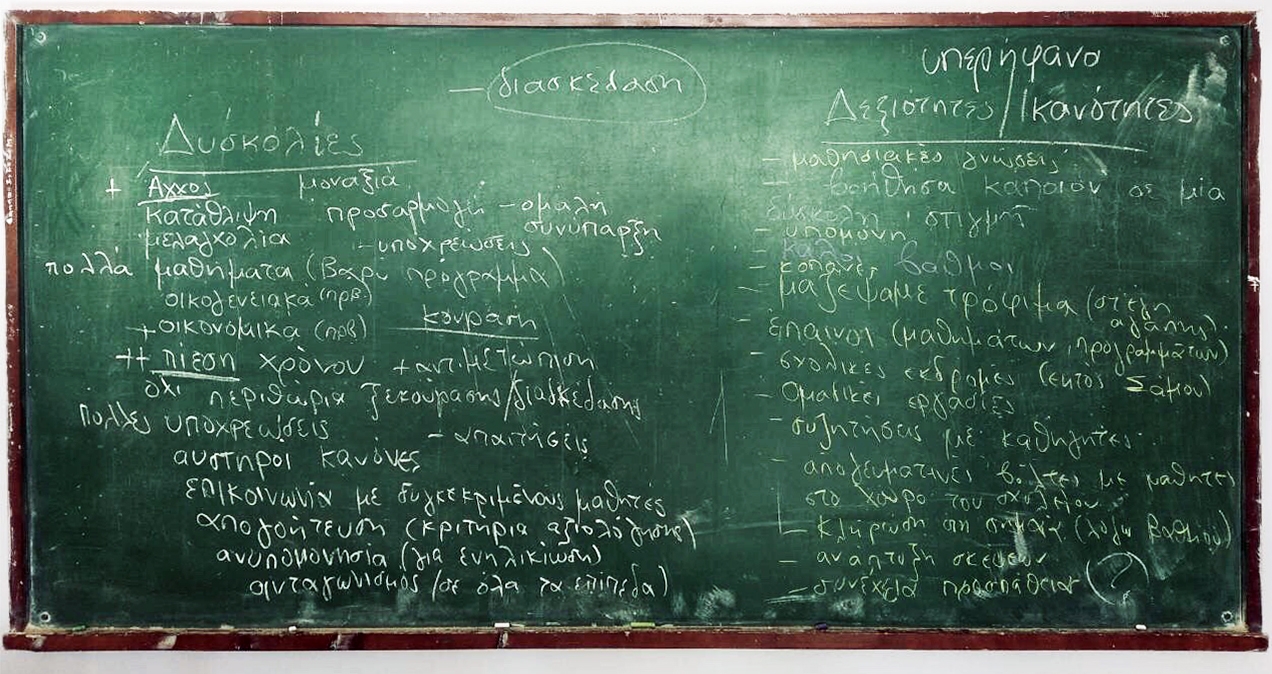 — διασκέδαση
Δυσκολίες
+ Αχχος μοναξιά
κατάθλιψη προσαρμογή – ομαλή συνύπαρξη
μελαγχολία – υποχρεώσεις
πολλά μαθήματα (βαρύ πρόγραμμα)
οικογενειακά (πρβ)
+ οικονομικά (πρβ) κούραση
++ πίεση χρόνου + αντιμετώπιση
όχι περιθώρια ξεκούρασης/διασκέδασης
πολλές υποχρεώσεις – απαιτήσεις
αυστηροί κανόνες
επικοινωνία με συγκεκριμένους μαθητές
απογοήτευση (κριτήρια αξιολόγησης)
ανυπομονησία (για ενηλικίωση)
ανταγωνισμός (σε όλα τα επίπεδα)
υπερήφανο
Δεξιότητες/Ικανότητες
– μαθησιακές γνώσεις
– βοήθησα κάποιον σε μία
δύσκολη στιγμή
– υπομονή
– καλοί βαθμοί
– κοπάνες
– μαζέψαμε τρόφιμα (στέγη αγάπης)
– έπαινοι (μαθημάτων, προγραμμάτων)
– σχολικές εκδρομές (εκτός Σάμου)
– Ομαδικές εργασίες
– συζητήσεις με καθηγητές
– απογευματινές βόλτες με μαθητές
στο χώρο του σχολείου
– κλήρωση στη σημαία (λόγω βαθμού)
– ανάπτυξη σκέψεων
– συνέχεια προσπάθεια (?)